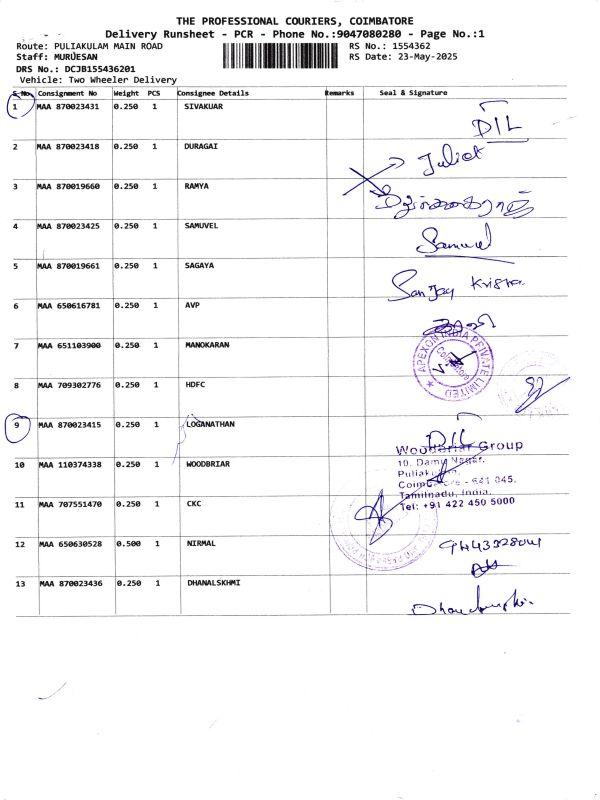 THE PROFESSIONAL COURIERS, COIMBATORE
Delivery Runsheet - PCR - Phone No.:9047080280 - Page No.:1
Route: PULIAKULAM MAIN ROAD RS No.: 1554362
Staff: MURUESAN RS Date: 23-May-2025
DRS No.: DCJB155436201
Vehicle: Two Wheeler Delivery
S.No. Consignment No Weight PCS Consignee Details Remarks Seal & Signature
1 MAA 870023431 0.250 1 SIVAKUAR
DIL
2 MAA 870023418 0.250 1 DURAGAI
Juliet
3 MAA 870019660 0.250 1 RAMYA
4 MAA 870023425 0.250 1 SAMUVEL
Samuvel
5 MAA 870019661 0.250 1 SAGAYA
Sanjay Krishna
6 MAA 650616781 0.250 1 AVP
7 MAA 651103900 0.250 1 MANOKARAN
APEXON INDIA PRIVATE LIMITED
Coimbatore
8 MAA 709302776 0.250 1 HDFC
9 MAA 870023415 0.250 1 LOGANATHAN
DIL
10 MAA 110374338 0.250 1 WOODBRIAR
Woodbriar Group
10, Damu Nagar,
Puliakulam,
Coimbatore - 641 045.
Tamilnadu, India.
Tel: +91 422 450 5000
11 MAA 707551470 0.250 1 CKC
12 MAA 650630528 0.500 1 NIRMAL
13 MAA 870023436 0.250 1 DHANALSKHMI